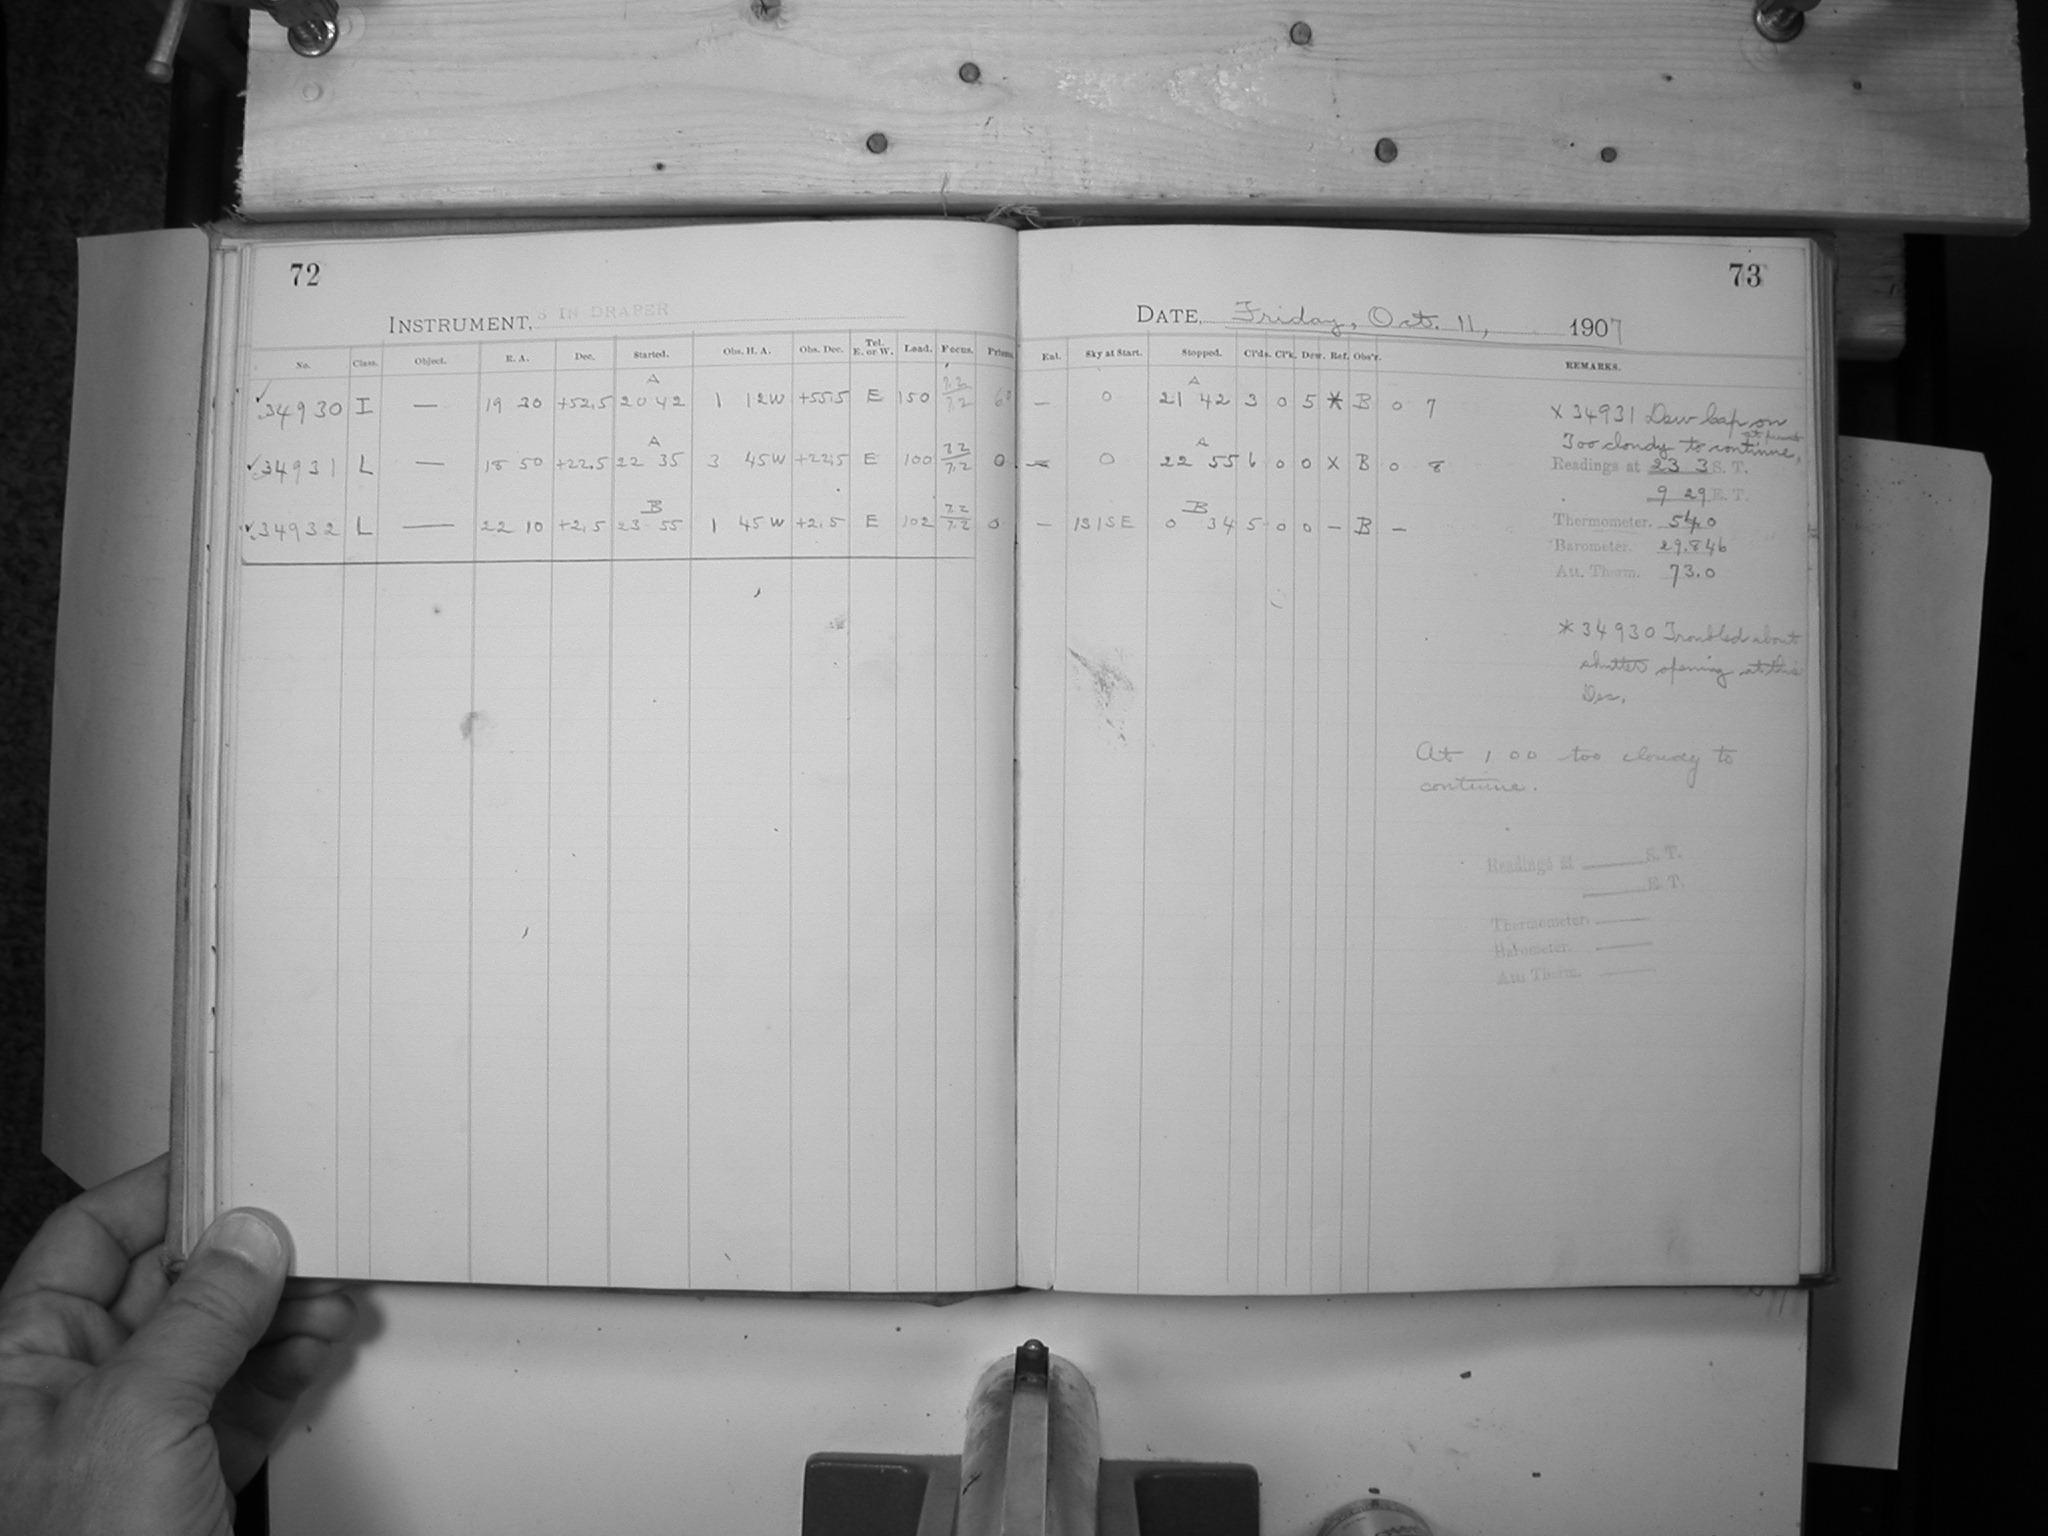 72
INSTRUMENT, 8 IN DRAPER
No. Class. Object. R. A. Dec. Started. Obs. H. A. Obs. Dec. Tel. E. or W. Load. Focus. Prisms.
A
✓34930 I — 19 30 +52.5 20 42 1 12W +55.5 E 150 7.2/7.2
A
✓34931 L — 18 50 +22.5 22 35 3 45W +22.5 E 100 7.2/7.2 0
B
✓34932 L — 22 10 +2.5 23 55 1 45W +2.5 E 102 7.2/7.2 0
73
DATE, Friday, Oct. 11, 1907
Ext. Sky at Start. Stopped. Cl'ds. Cl'k. Dew. Ref. Obs'r. REMARKS.
A
— 0 21 42 3 0 5 * B 0 7
A
— 0 22 55 6 0 0 X B 0 8
B
— 1S1SE 0 34 5 0 0 — B —
X 34931 Dew Cap on
at present
Too cloudy to continue,
Readings at 23 3 S. T.
9 29 E. T.
Thermometer. 54.0
Barometer. 29.846
Att. Therm. 73.0
* 34930 Troubled about
shutter opening at this
Dec.
At 1 00 too cloudy to
continue.
Readings at ____ S. T.
____ E. T.
Thermometer. ____
Barometer. ____
Att. Therm. ____